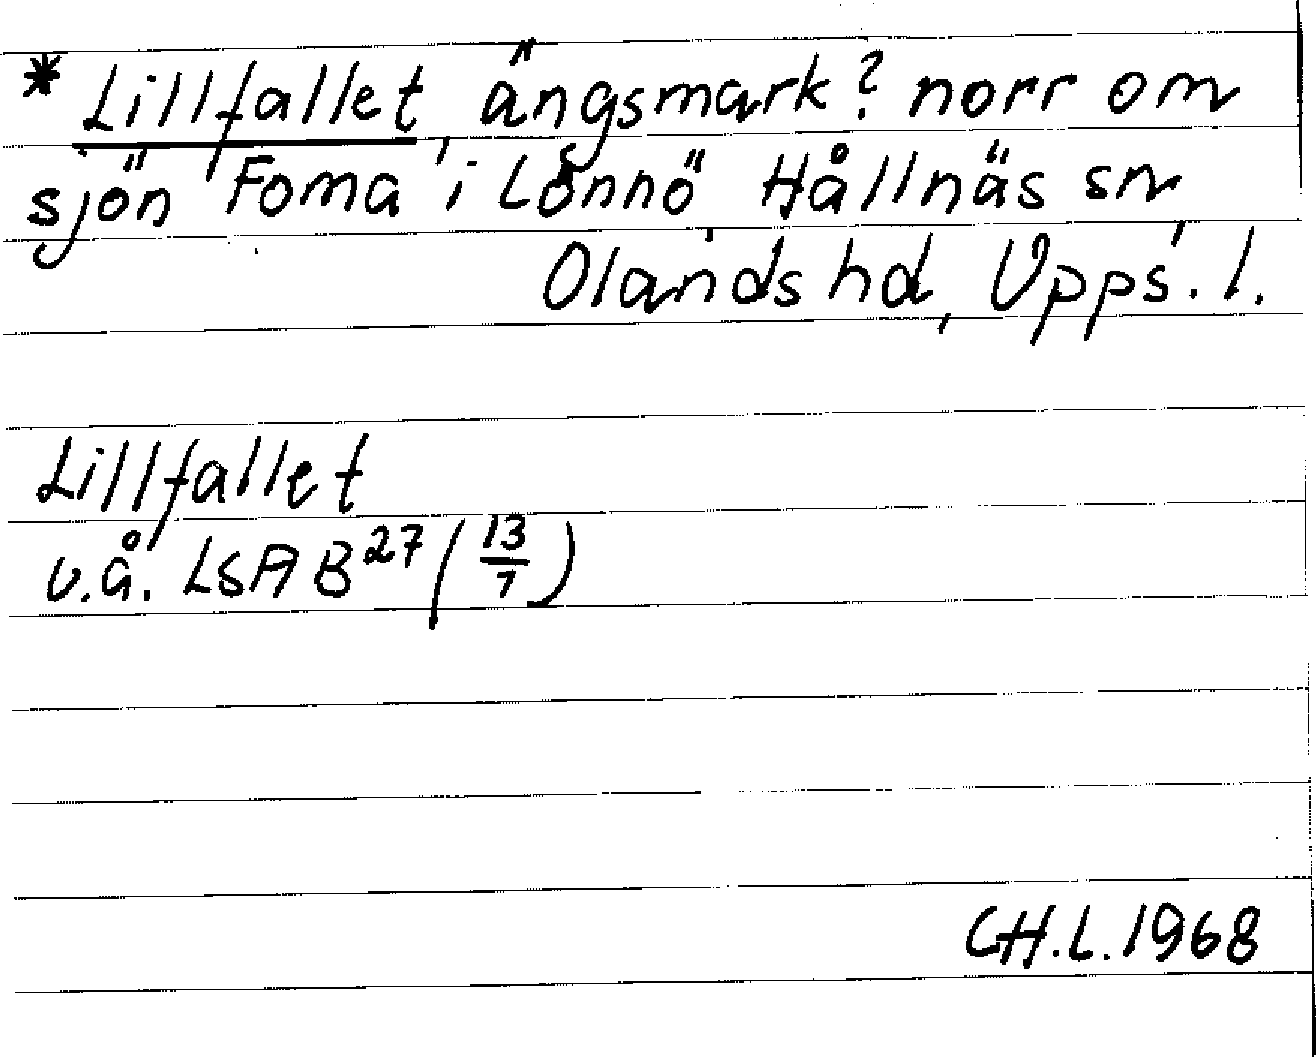 * Lillfallet, ängsmark? norr om
sjön Foma i Lönnö Hållnäs sn,
Olands hd, Upps. l.
Lillfallet
u.å. LSA B27 (13/7)
CH.L. 1968